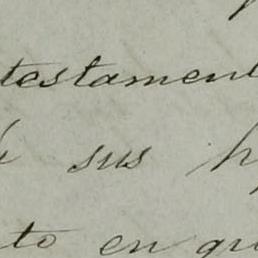 testament
sus h
to en qu